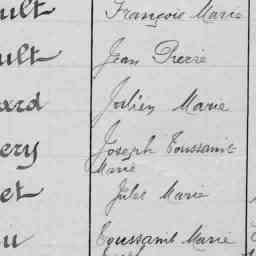 ult François Marie
ult Jean Pierre
ard Julien Marie
ery Joseph Toussaint
Marie
et Jules Marie
u Toussaint Marie